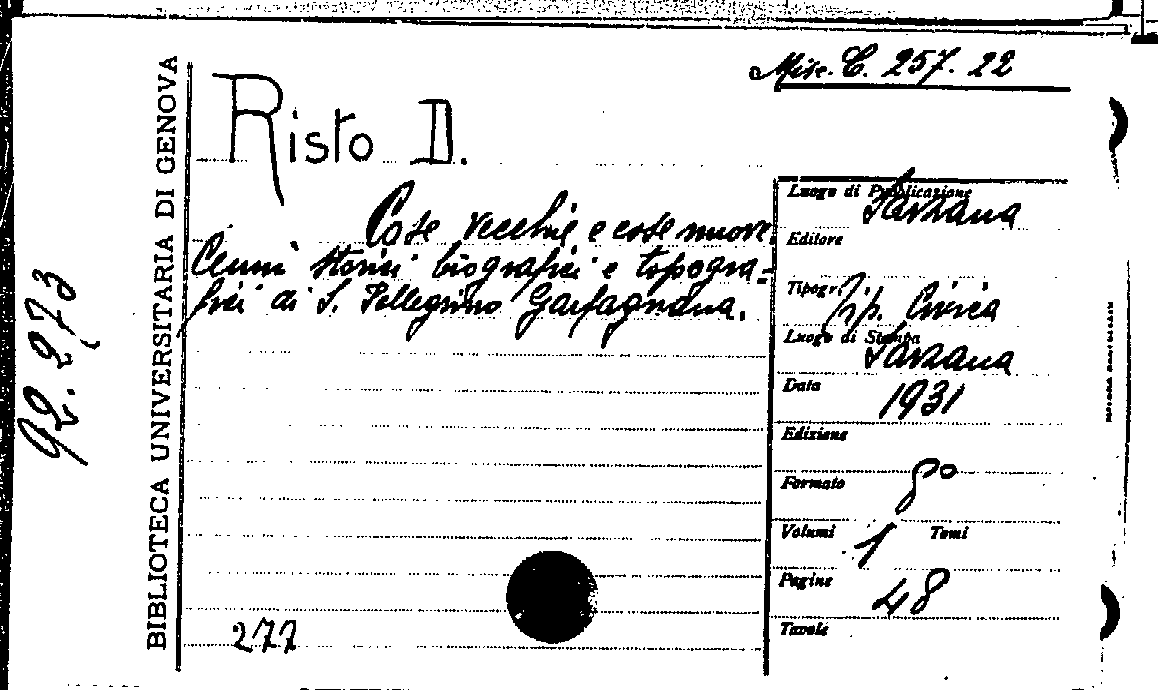 Misc. C. 257. 22
Risto D.
Cose vecchie e cose nuove.
Cenni storici biografici e topogra-
fici di S. Pellegrino Garfagnana.
277
BIBLIOTECA UNIVERSITARIA DI GENOVA
92.273
Luogo di Pubblicazione Sarzana
Editore
Tipogr. Tip. Civica
Luogo di Stampa Sarzana
Data 1931
Edizione
Formato 8°
Volumi 1 Tomi
Pagine 48
Tavole